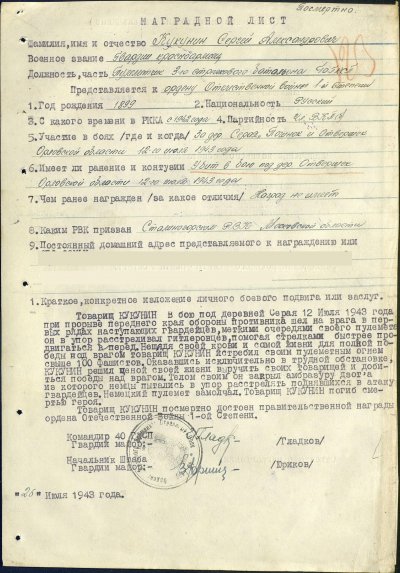 Посмертно.
НАГРАДНОЙ ЛИСТ
Фамилия, имя и отчество Кукунин Сергей Александрович
Военное звание Гвардии красноармеец
Должность, часть 3-го стрелкового батальона
Представляется к ордену Отечественной войны 1-й степени
1.Год рождения 1899 2.Национальность Русский
3.С какого времени в РККА с 1942 года 4.Партийность Чл. ВКП(б)
5.Участие в боях /где и когда/ За дер. Серая,
Орловской области 12-го июля 1943 года
6.Имеет ли ранение и контузии Убит в бою под дер.
Орловской области 12-го июля 1943 года
7.Чем ранее награжден /за какое отличия/ Наград не имеет
8.Каким РВК призван Сталиногорским РВК Московской области
9.Постоянный домашний адрес представляемого к награждению или
1.Краткое,конкретное изложение личного боевого подвига или заслуг.
Товарищ КУКУНИН в бою под деревней Серая 12 Июля 1943 года
при прорыве переднего края обороны противника шел на врага в пер-
вых рядах наступающих гвардейцев,меткими очередями своего пулемета
он в упор расстреливал гитлеровцев,помогая стрелкам быстрее про-
двигаться в-перед.Нещадя своей крови и самой жизни для полной по-
беды над врагом товарищ КУКУНИН истребил своим пулеметным огнем
свыше 100 фашистов.Оказавшись исключительно в трудной обстановке,
КУКУНИН решил ценой своей жизни выручить своих товарищей и доби-
ться победы над врагом.Телом своим он закрыл амбразуру дзот'а
из которого немцы пытались в упор расстрелять поднявшихся в атаку
гвардейцев.Немецкий пулемет замолчал.Товарищ КУКУНИН погиб сме-
ртью героя.
Товарищ КУКУНИН посмертно достоен правительственной награды
ордена Отечественной Войны 1-ой Степени.
Командир 40 ГСП
Гвардии майор:- /Гладков/
Начальник Штаба
Гвардии майор:- /Юриков/
Июля 1943 года.